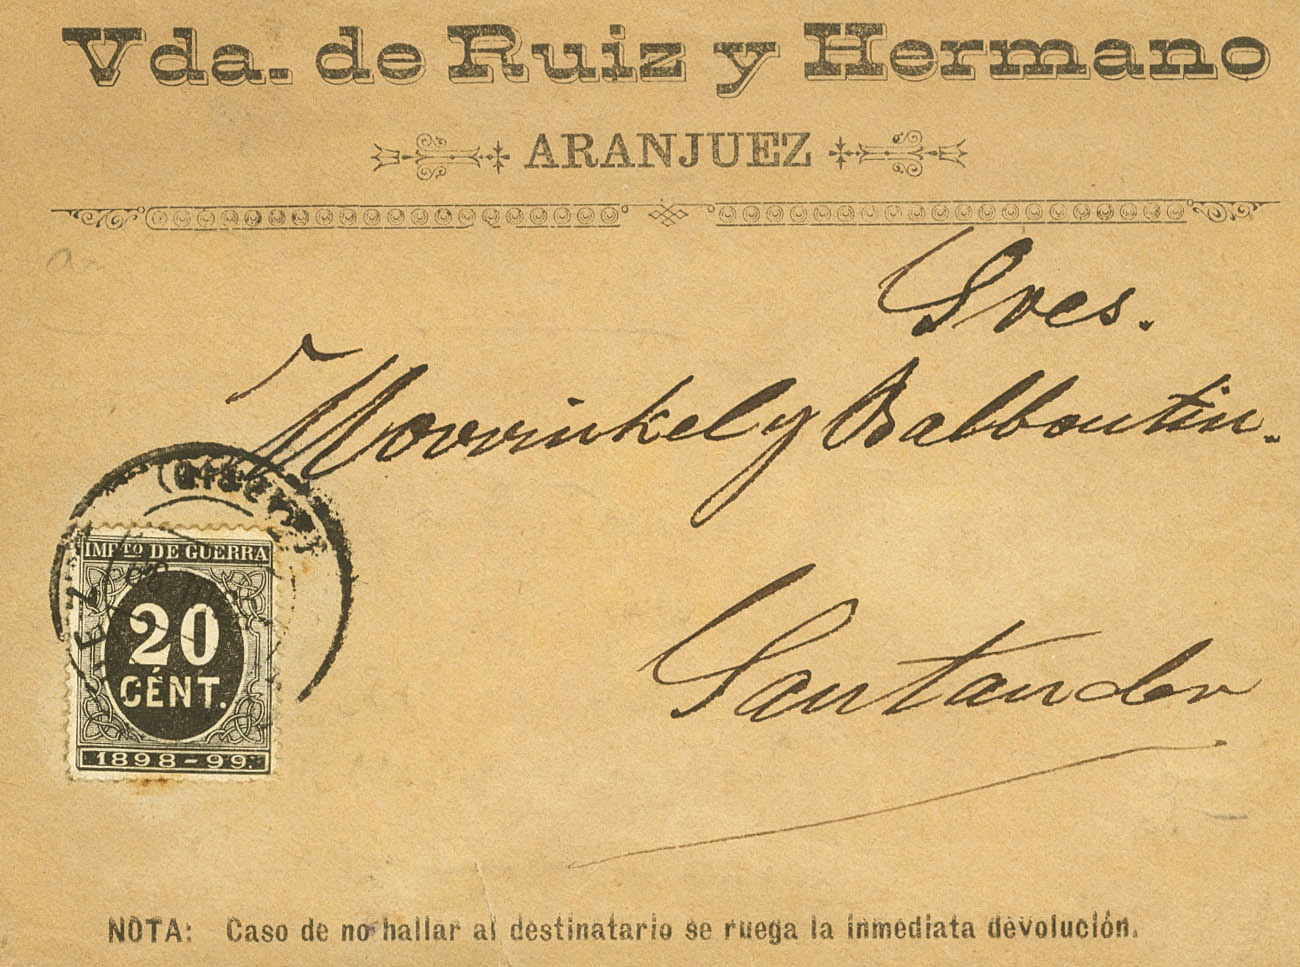 Vda. de Ruiz y Hermano
ARANJUEZ
Sres.
Movvinkel y Balboutin.
IMPTO DE GUERRA
20
CÉNT.
1898-99.
Santander
NOTA: Caso de no hallar al destinatario se ruega la inmediata devolución.